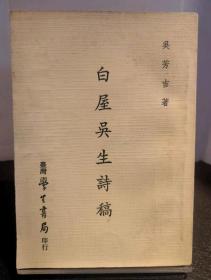 吳芳吉著
白屋吳生詩稿
臺灣學生書局印行